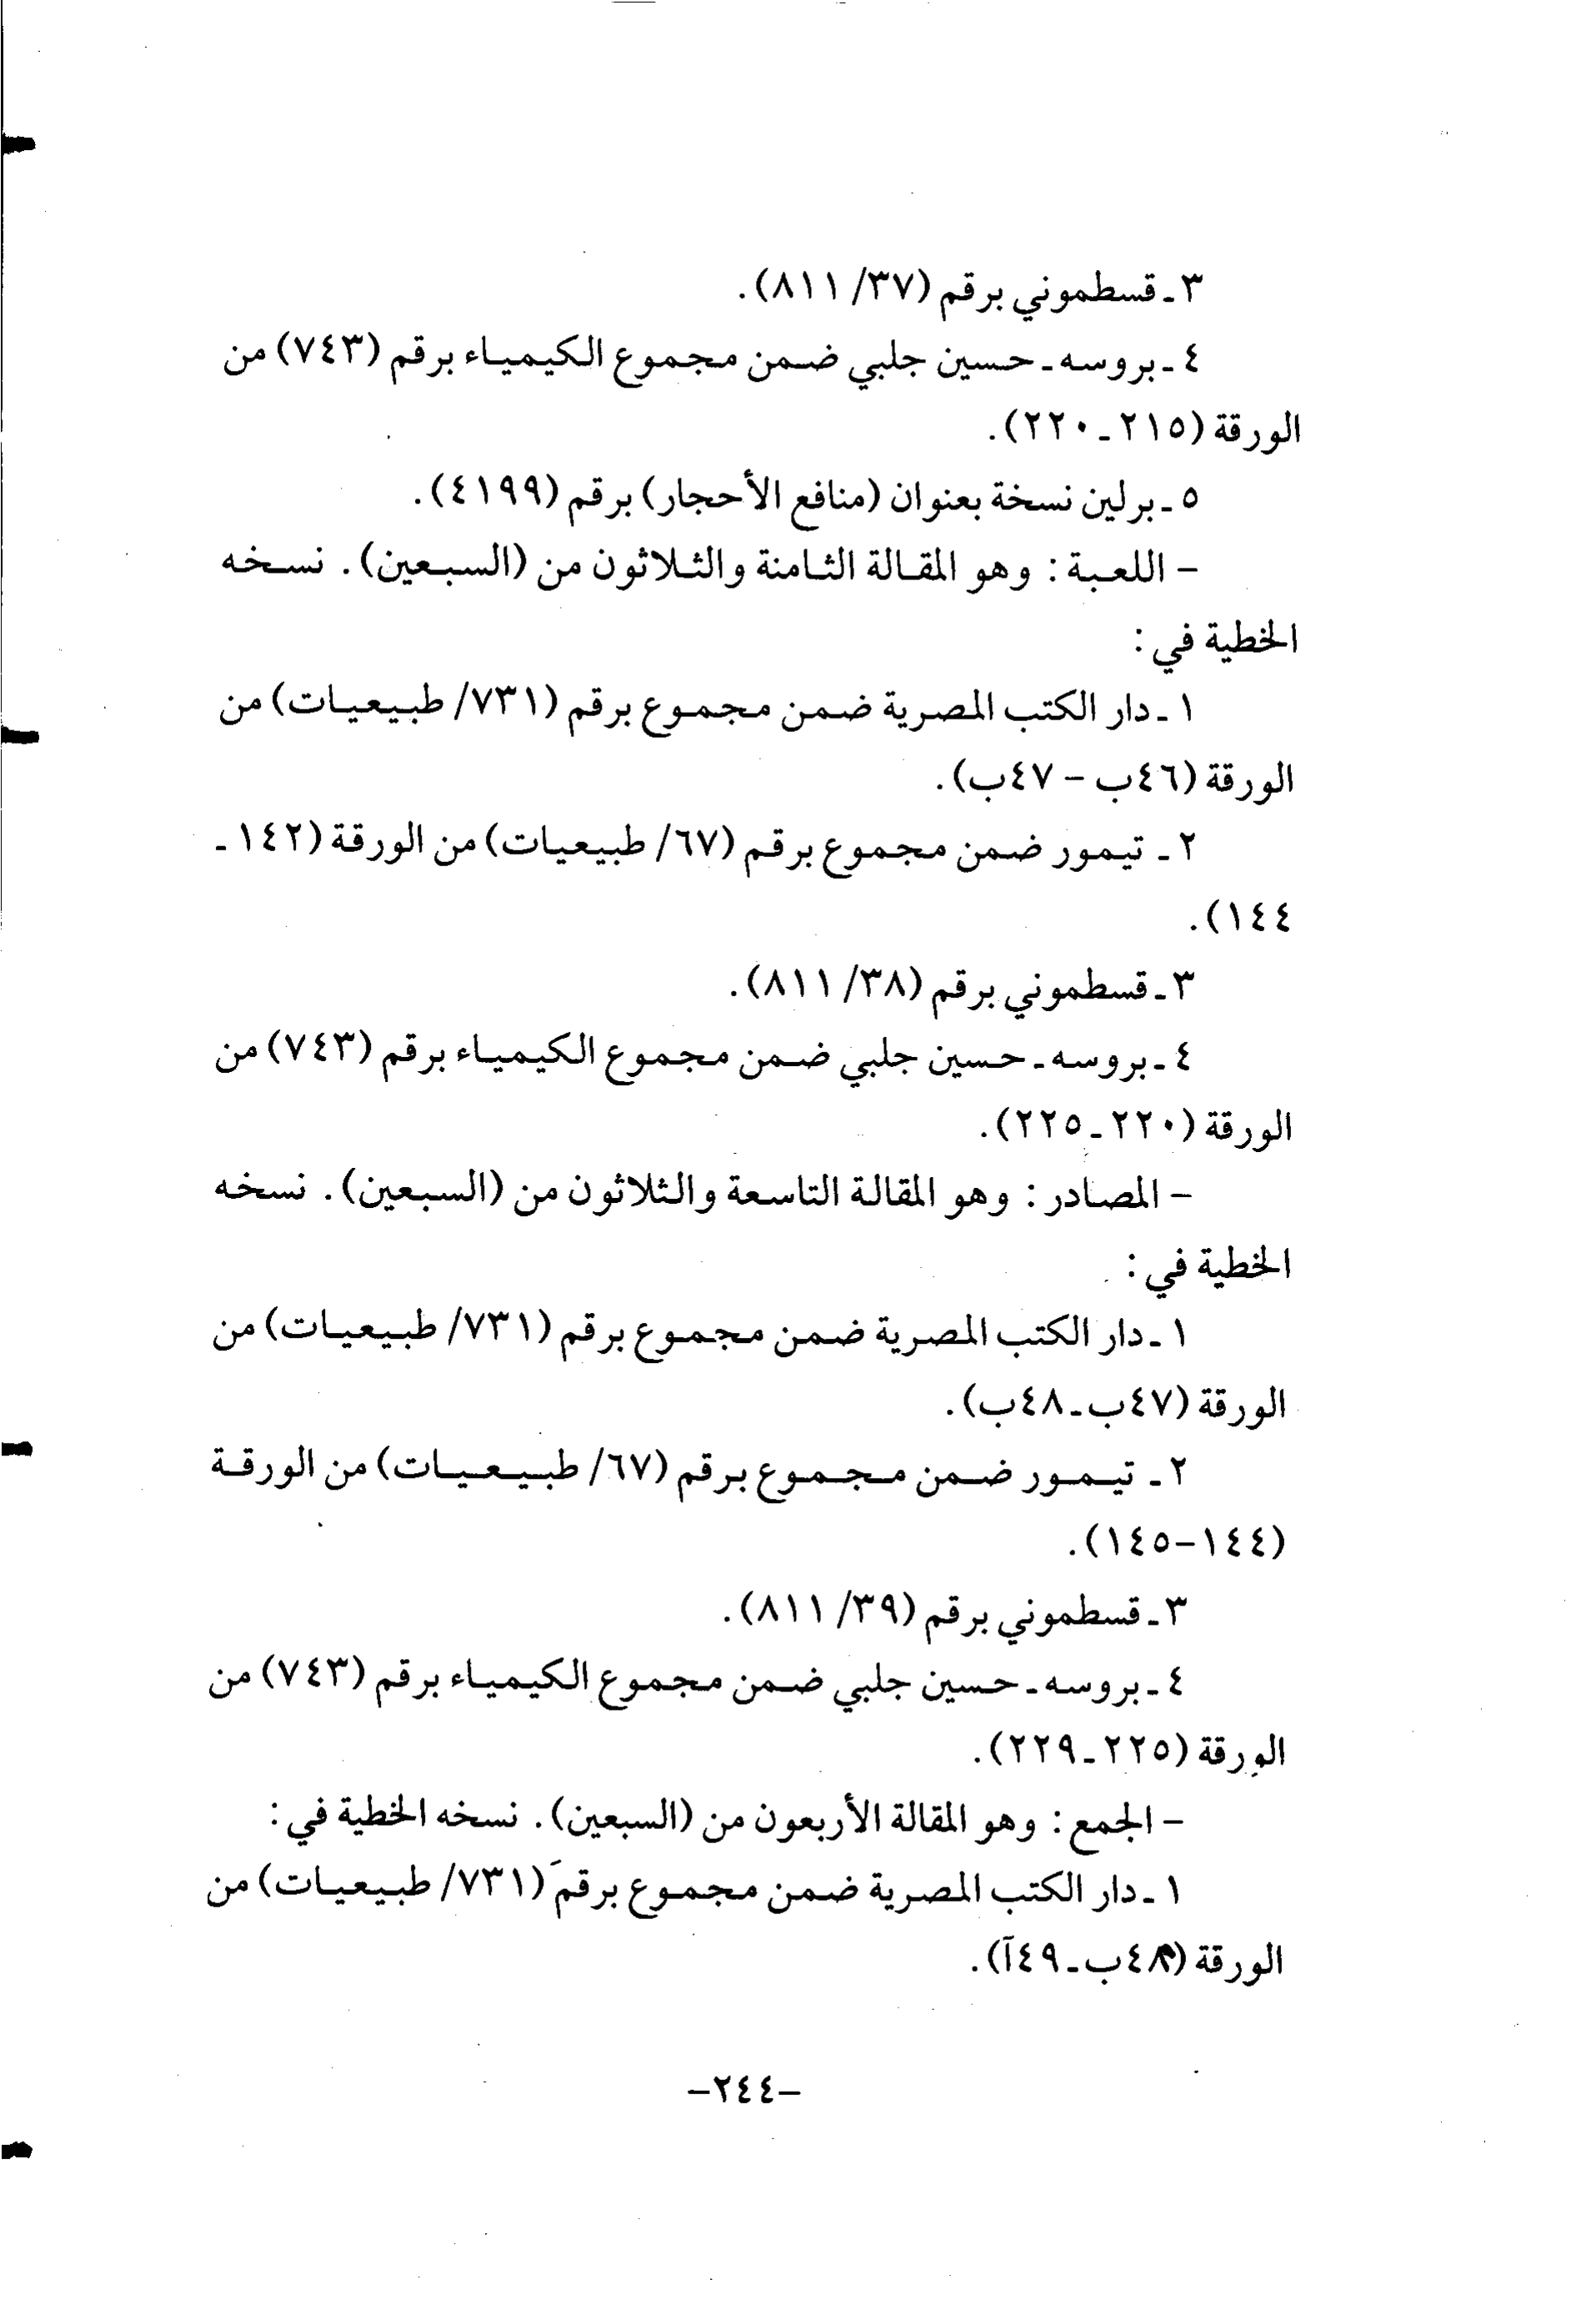 ٣ ـ قسطموني برقم (٣٧/ ٨١١).
٤ ـ بروسه ـ حسين جلبي ضمن مجموع الكيمياء برقم (٧٤٣) من
الورقة (٢١٥ ـ ٢٢٠).
٥ ـ برلين نسخة بعنوان (منافع الأحجار) برقم (٤١٩٩).
– اللعبة : وهو المقالة الثامنة والثلاثون من (السبعين). نسخه
الخطية في :
١ ـ دار الكتب المصرية ضمن مجموع برقم (٧٣١/ طبيعيات) من
الورقة (٤٦ب – ٤٧ب).
٢ ـ تيمور ضمن مجموع برقم (٦٧/ طبيعيات) من الورقة (١٤٢ ـ
١٤٤).
٣ ـ قسطموني برقم (٣٨/ ٨١١).
٤ ـ بروسه ـ حسين جلبي ضمن مجموع الكيمياء برقم (٧٤٣) من
الورقة (٢٢٠ ـ ٢٢٥).
– المصادر : وهو المقالة التاسعة والثلاثون من (السبعين). نسخه
الخطية في :
١ ـ دار الكتب المصرية ضمن مجموع برقم (٧٣١/ طبيعيات) من
الورقة (٤٧ب ـ ٤٨ب).
٢ ـ تيمور ضمن مجموع برقم (٦٧/ طبيعيات) من الورقة
(١٤٤–١٤٥).
٣ ـ قسطموني برقم (٣٩/ ٨١١).
٤ ـ بروسه ـ حسين جلبي ضمن مجموع الكيمياء برقم (٧٤٣) من
الورقة (٢٢٥ ـ ٢٢٩).
– الجمع : وهو المقالة الأربعون من (السبعين). نسخه الخطية في :
١ ـ دار الكتب المصرية ضمن مجموع برقم (٧٣١/ طبيعيات) من
الورقة (٤٨ب ـ ٤٩آ).
–٢٤٤–